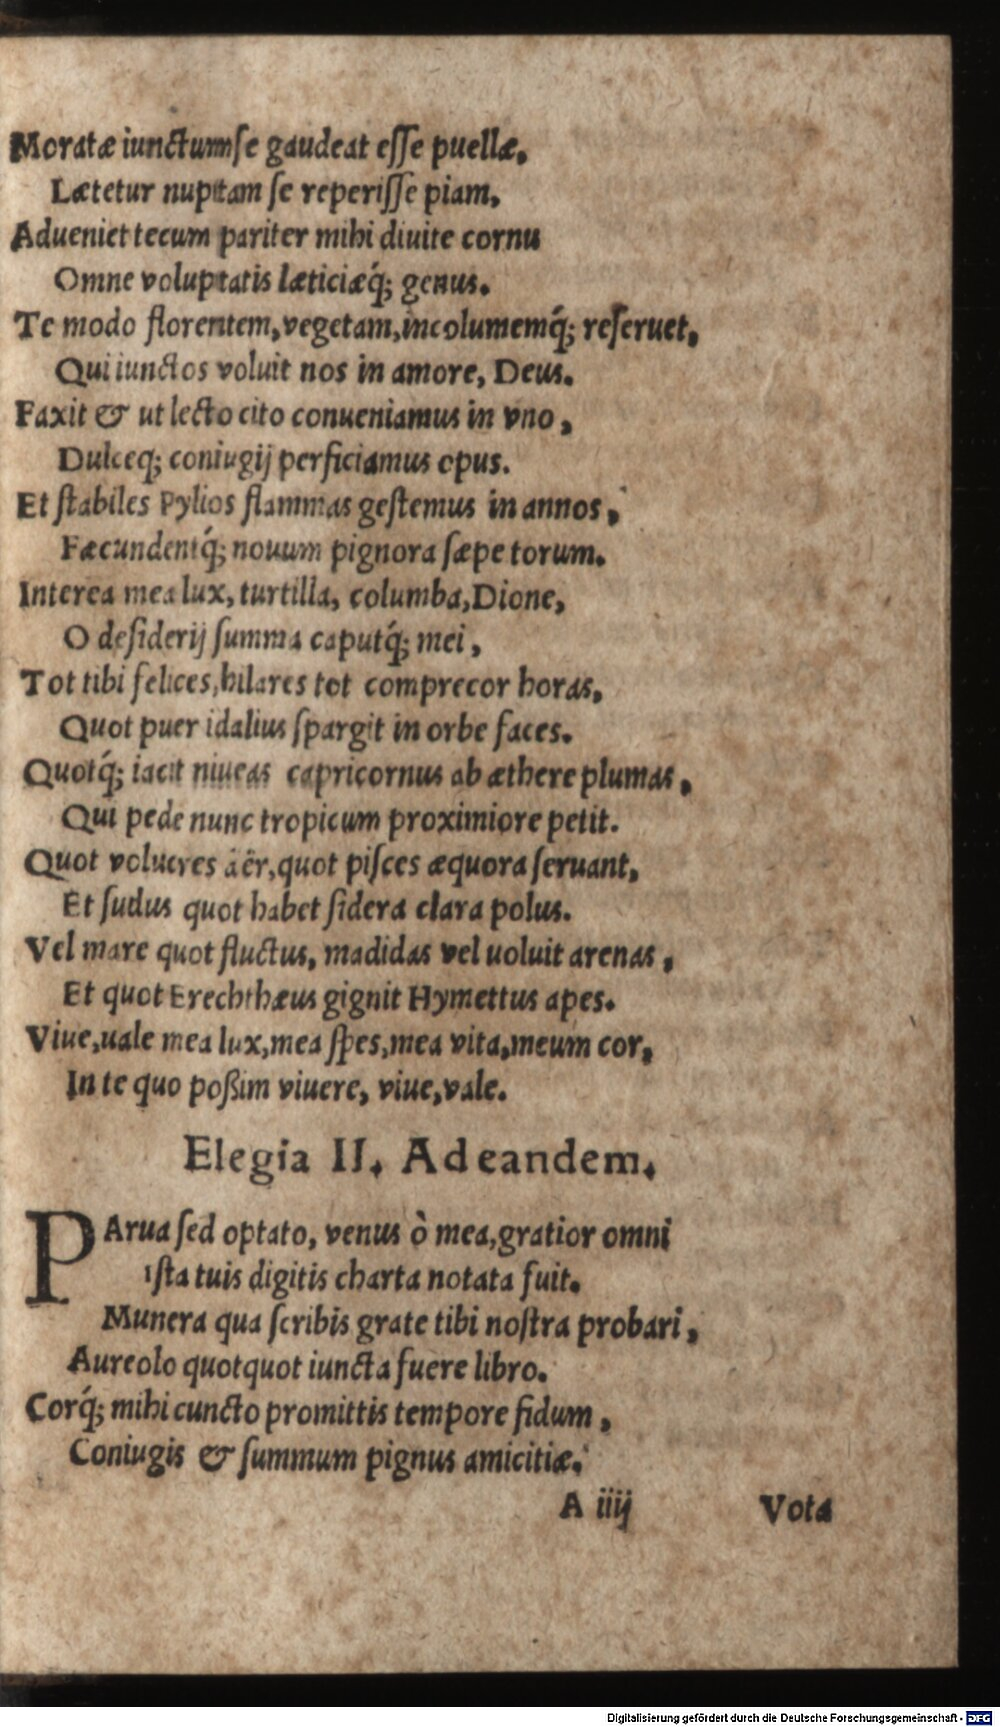 Moratæ iunctum se gaudeat eſſe puellæ,
Lætetur nuptam ſe reperiſſe piam,
Adueniet tecum pariter mihi diuite cornu
Omne voluptatis læticiæq́; genus.
Te modo florentem, vegetam, incolumemq́; reſeruet,
Qui iunctos voluit nos in amore, Deus.
Faxit & ut lecto cito conueniamus in vno,
Dulceq; coniugij perficiamus opus.
Et ſtabiles Pylios flammas geſtemus in annos,
Fæcundentq́; nouum pignora ſæpe torum.
Interea mea lux, turtilla, columba, Dione,
O deſiderij ſumma caputq́; mei,
Tot tibi felices, hilares tot comprecor horas,
Quot puer idalius ſpargit in orbe faces.
Quotq́; iacit niueas capricornus ab æthere plumas,
Qui pede nunc tropicum proximiore petit.
Quot volucres aër, quot piſces æquora ſeruant,
Et ſudus quot habet ſidera clara polus.
Vel mare quot fluctus, madidas vel uoluit arenas,
Et quot Erechthæus gignit Hymettus apes.
Viue, uale mea lux, mea ſpes, mea vita, meum cor,
In te quo poßim viuere, viue, vale.
Elegia II. Ad eandem.
PArua ſed optato, venus ò mea, gratior omni
Iſta tuis digitis charta notata fuit.
Munera qua ſcribis grate tibi noſtra probari,
Aureolo quotquot iuncta fuere libro.
Corq́; mihi cuncto promittis tempore fidum,
Coniugis & ſummum pignus amicitiæ.
A iiij Vota
Digitalisierung gefördert durch die Deutsche Forschungsgemeinschaft - DFG